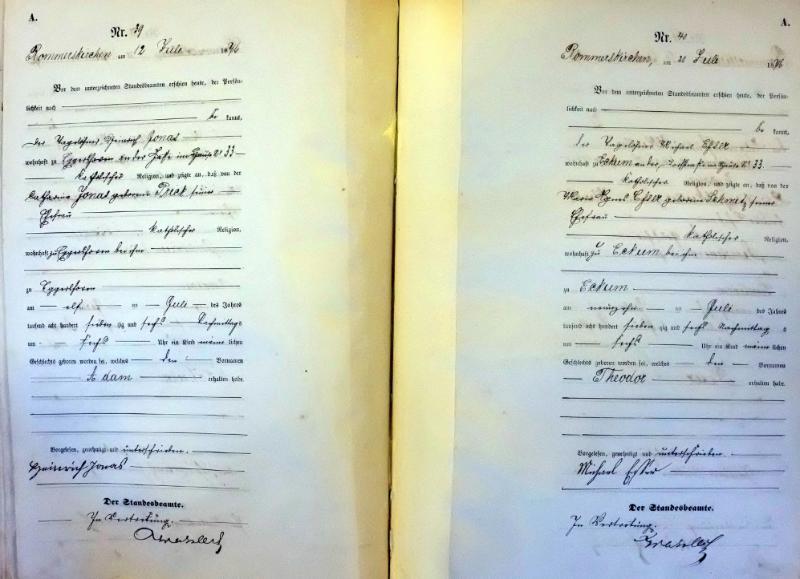 A.
Nr. 39
Rommerskirchen am 12 Juli 1876
Vor dem unterzeichneten Standesbeamten erschien heute, der Persön-
lichkeit nach
be kannt,
der Tagelöhner Heinrich Jonas
wohnhaft zu im Hause No 33
katholischer Religion, und zeigte an, daß von der
Katharina Jonas geborene seiner
Ehefrau
katholischer Religion,
wohnhaft zu bei ihm
zu
am elf ten Juli des Jahres
tausend acht hundert sieben zig und sechs Nachmittags
um sechs Uhr ein Kind männ lichen
Geschlechts geboren worden sei, welches den Vornamen
Adam erhalten habe.
Vorgelesen, genehmigt und unterschrieben.
Heinrich Jonas
Der Standesbeamte.
In Vertretung.
A.
Nr. 40
Rommerskirchen, am 20 Juli 1876
Vor dem unterzeichneten Standesbeamten erschien heute, der Persön-
lichkeit nach
be kannt,
der Tagelöhner Michael Esser
wohnhaft zu Eckum an der im Hause No 33.
katholischer Religion, und zeigte an, daß von der
Maria Agnes Esser geborene Schmitz seiner
Ehefrau
katholischer Religion,
wohnhaft zu Eckum bei ihm
zu Eckum
am neunzehn ten Juli des Jahres
tausend acht hundert sieben zig und sechs Nachmittag s
um sechs Uhr ein Kind männ lichen
Geschlechts geboren worden sei, welches den Vornamen
Theodor erhalten habe.
Vorgelesen, genehmigt und unterschrieben.
Michael Esser
Der Standesbeamte.
In Vertretung.